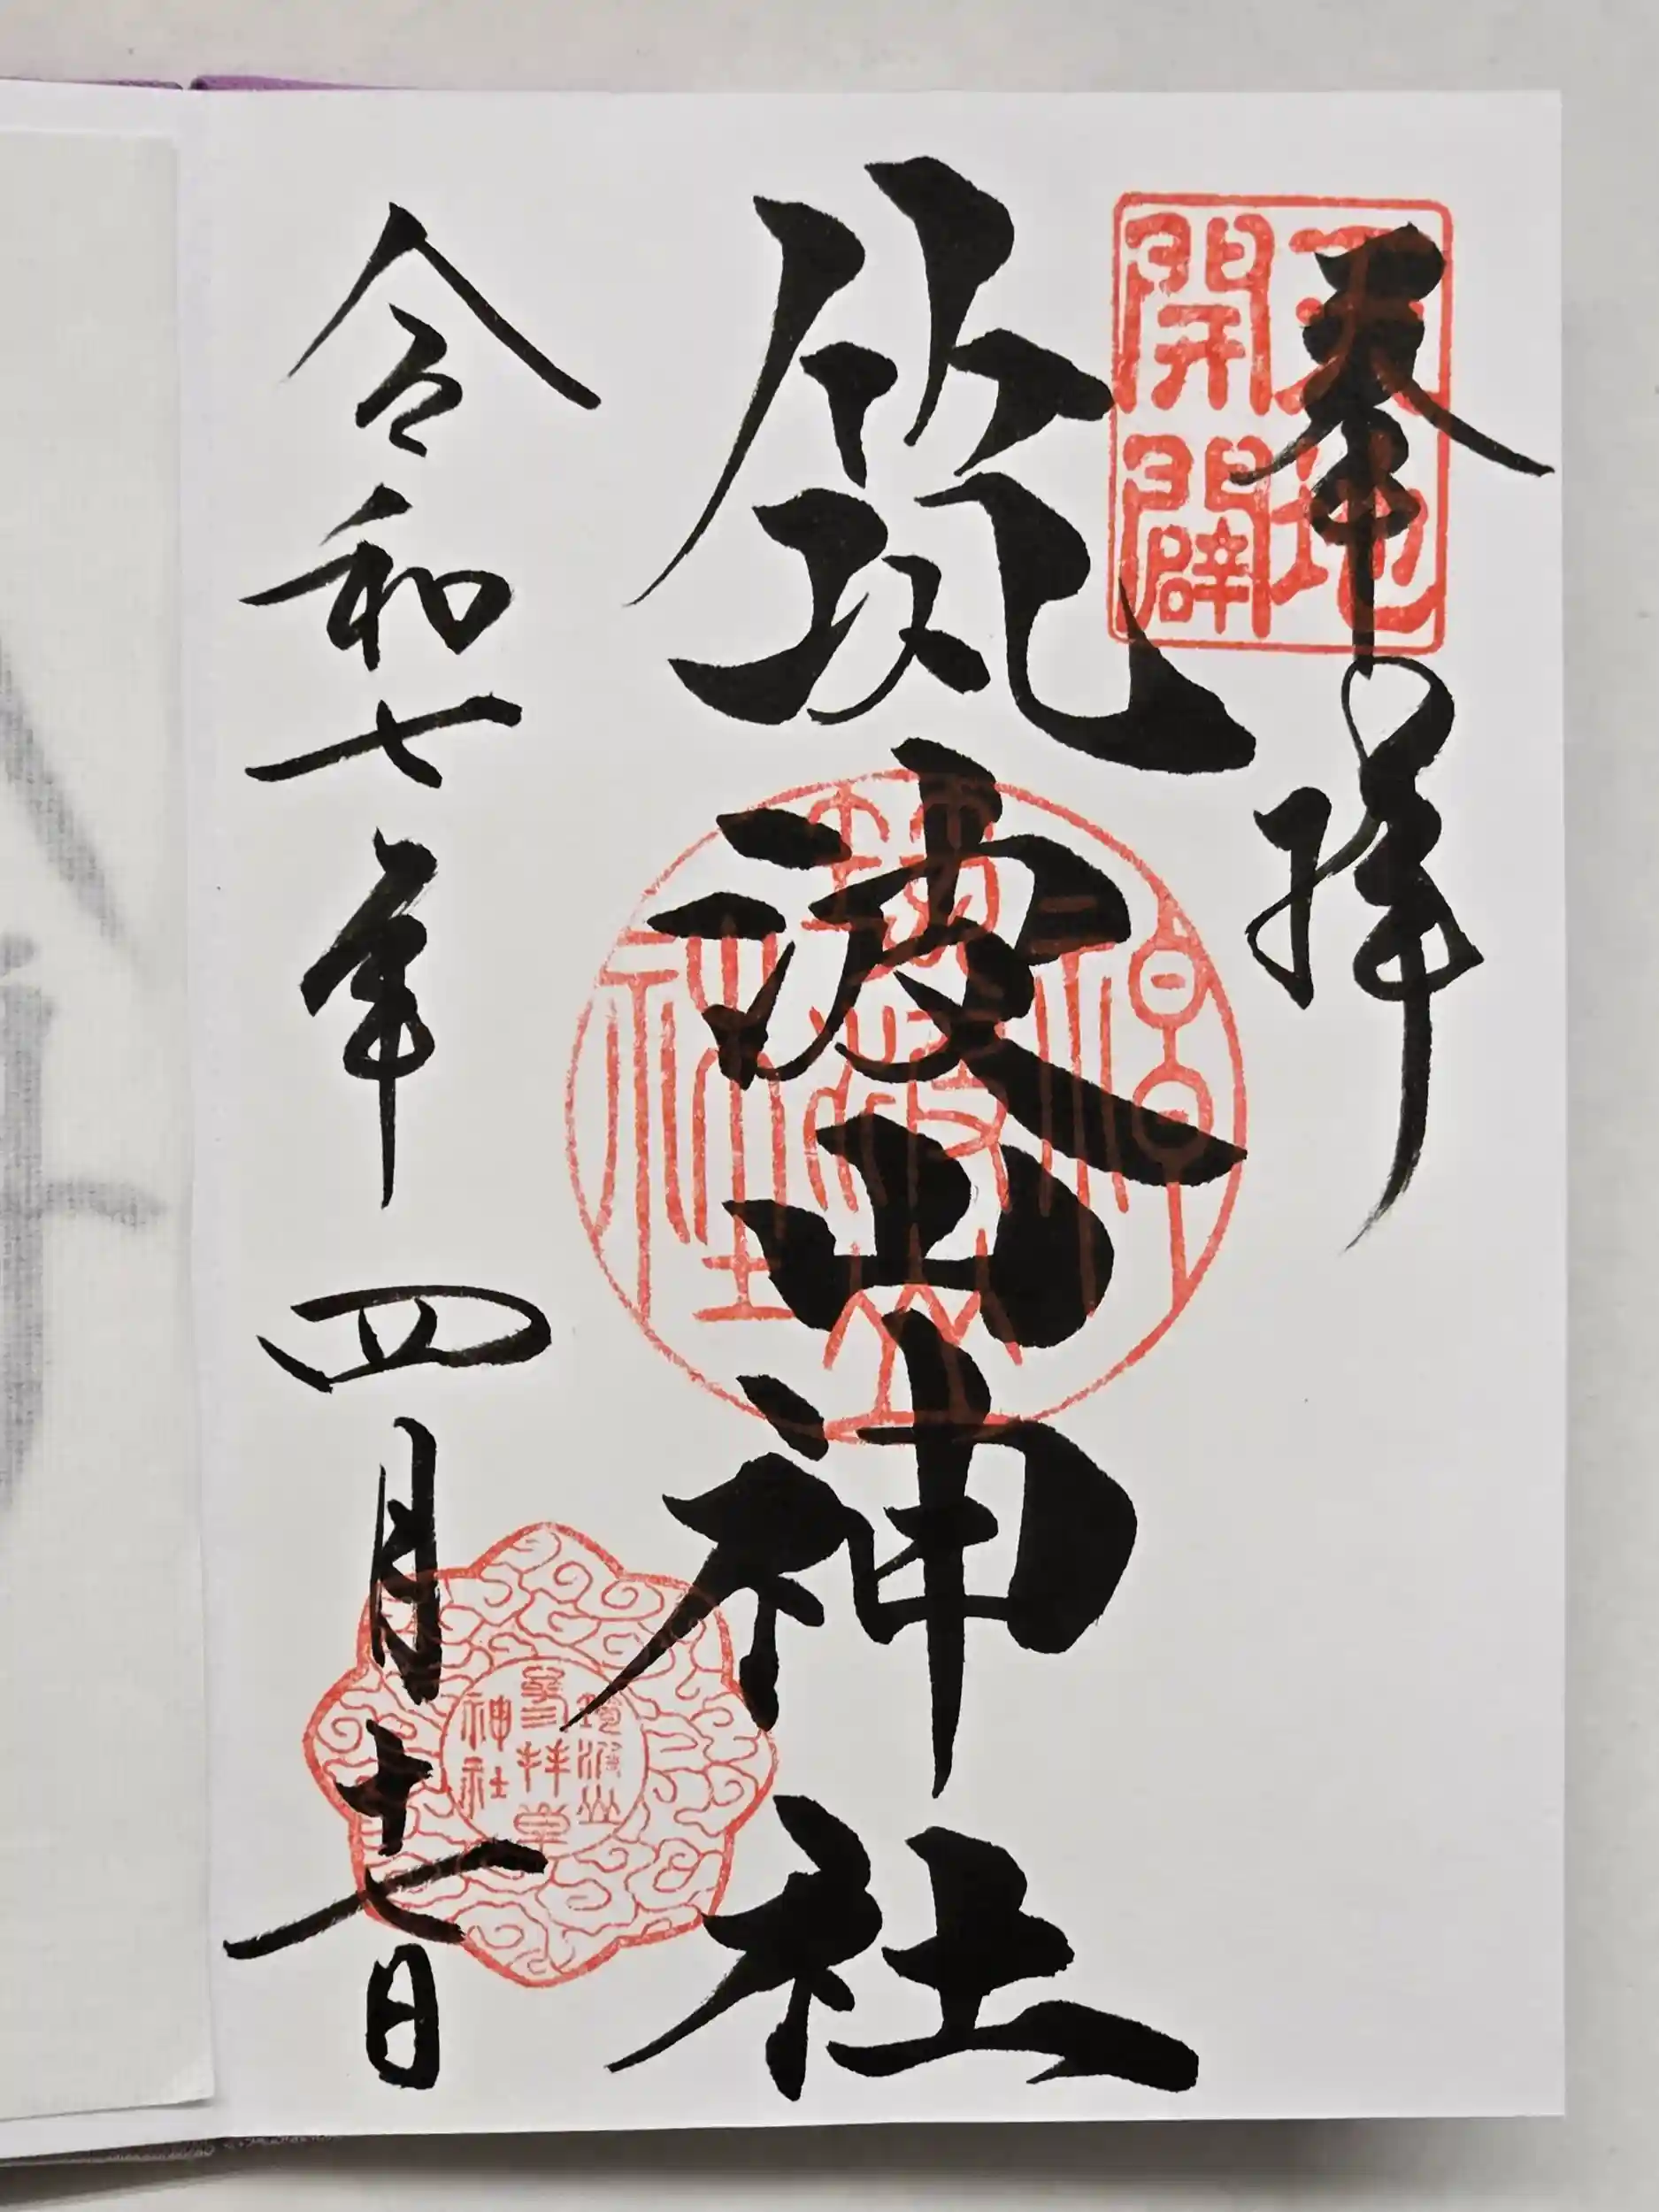 奉拝
天地
開闢
筑波山神社
筑波山
参拝章
神社
令和七年四月十七日